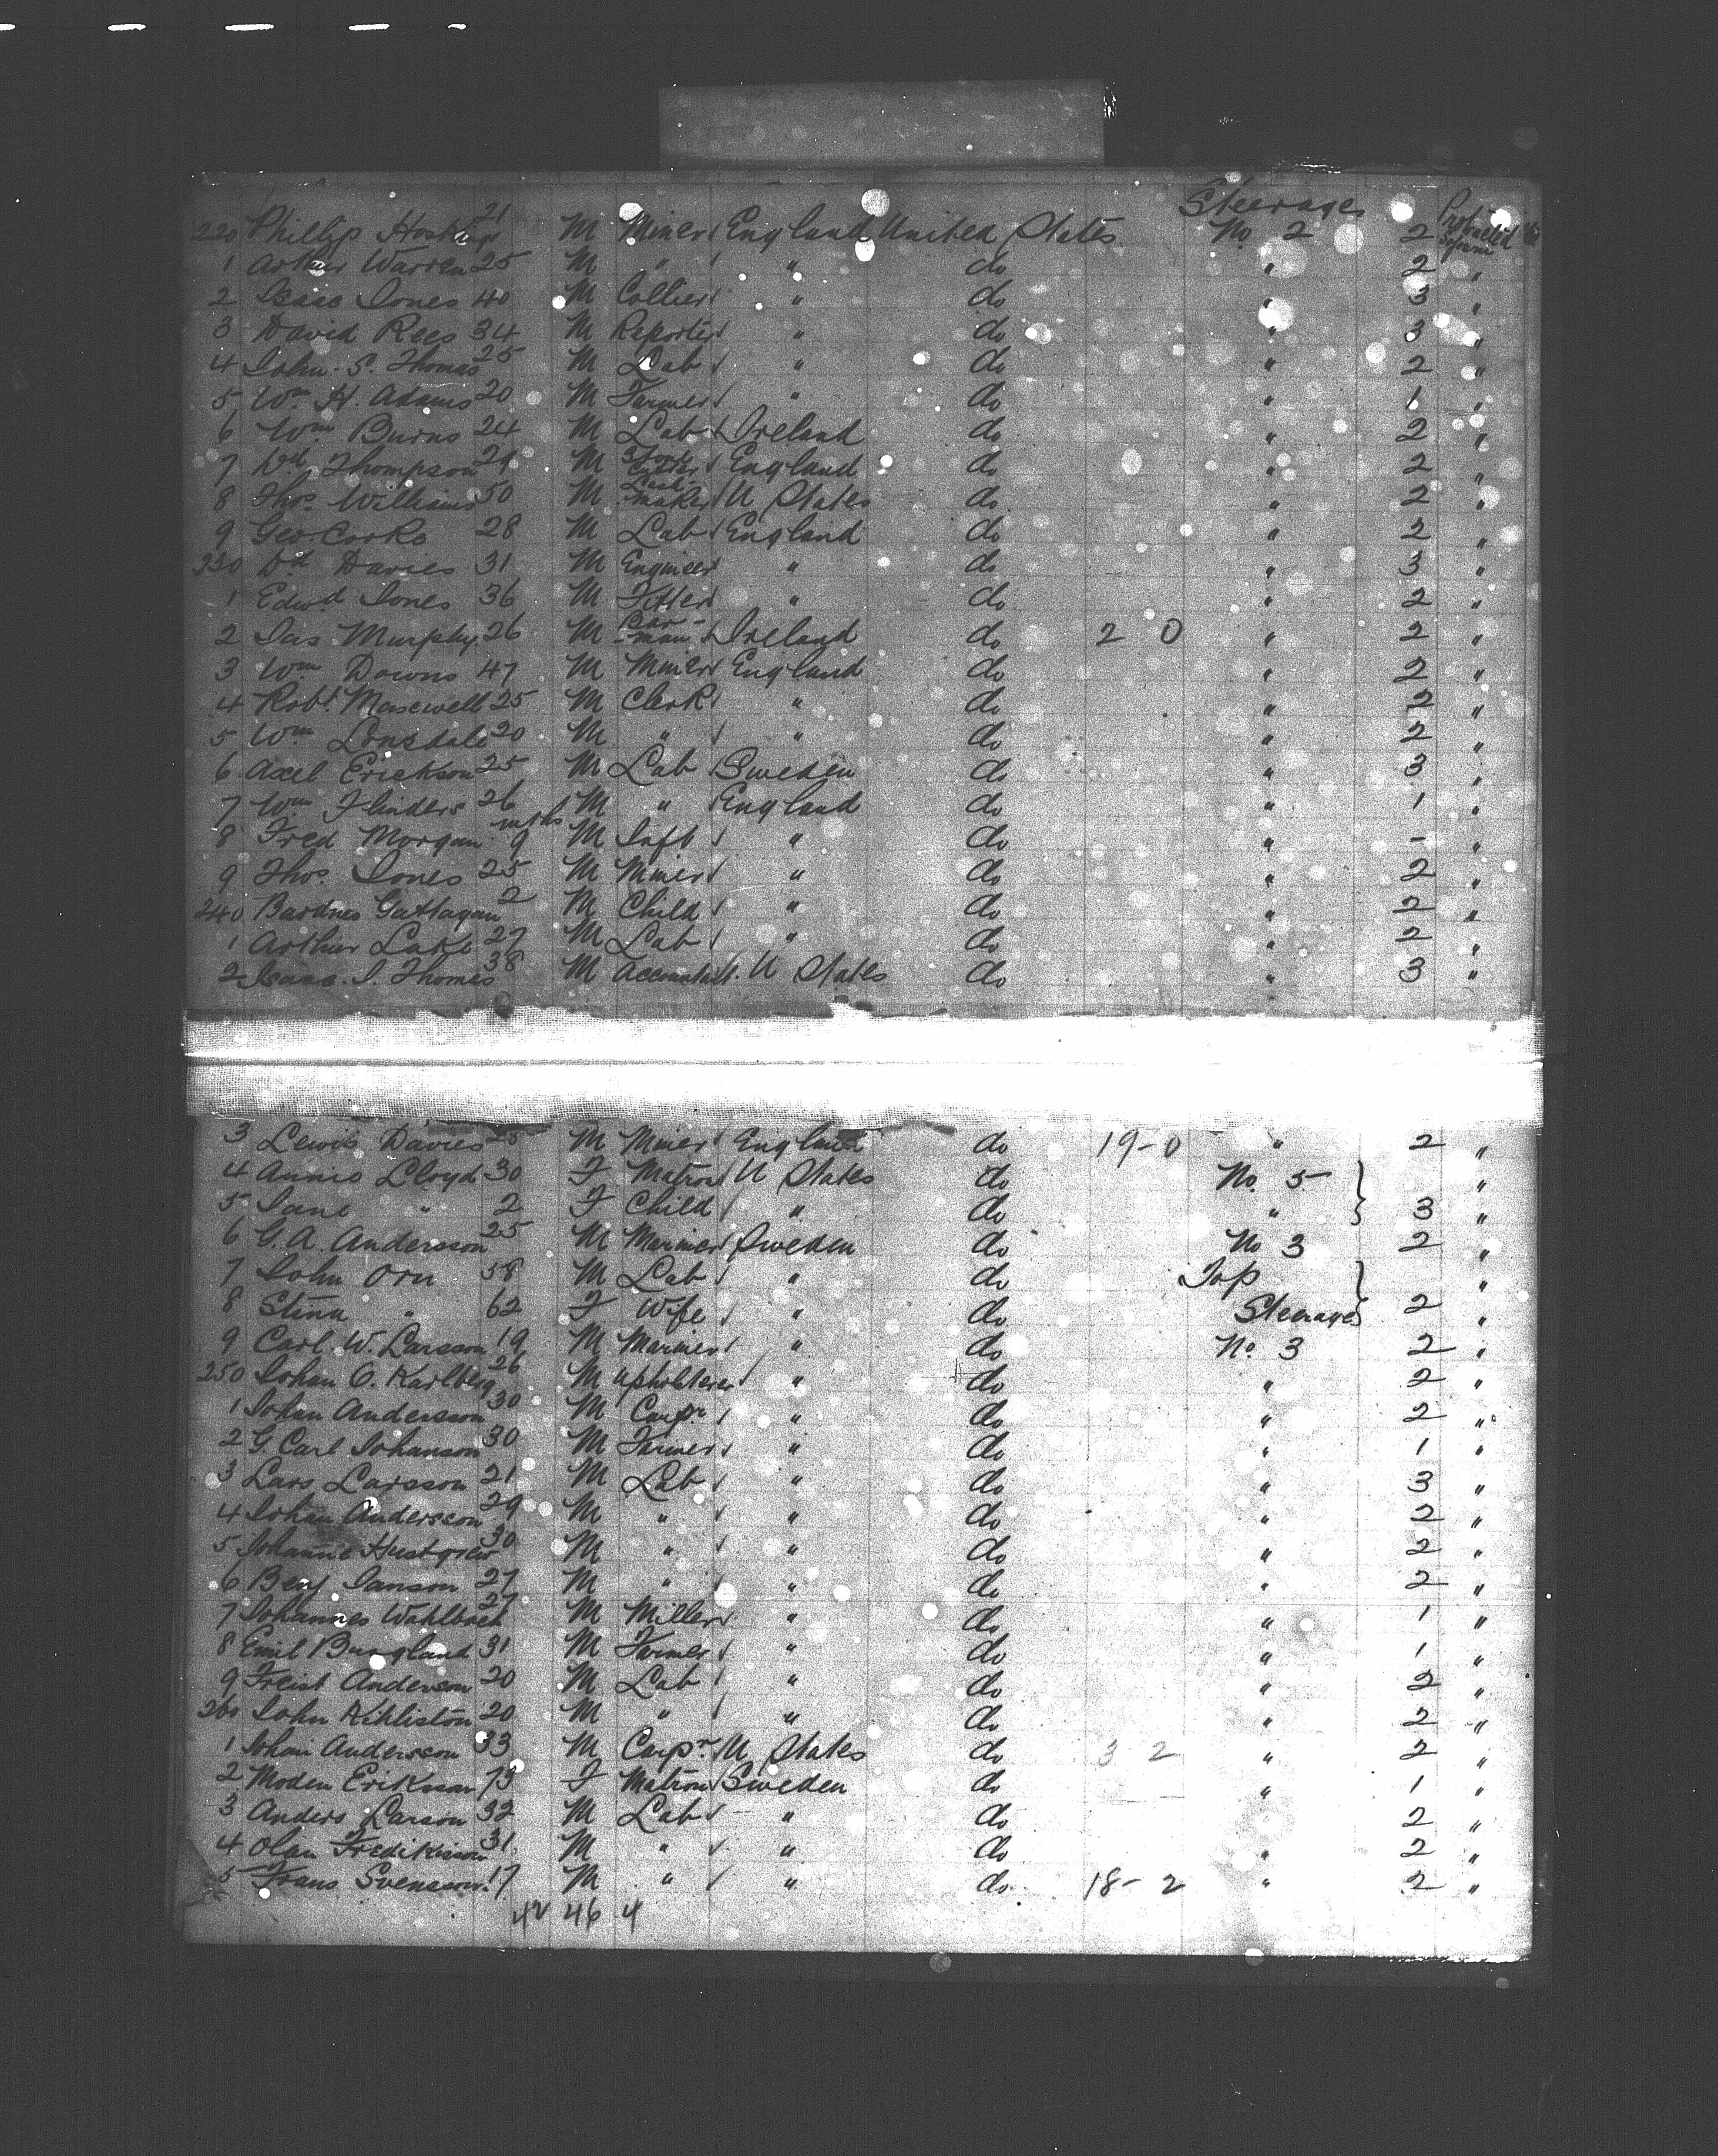 Steerage
220 Phillip 21 M Miner England United States No 2 2 Protracted
1 Arthur Warren 25 M " " do " 2 "
2 Isaac Jones 40 M Collier " do " 3 "
3 David Rees 34 M Reporter " do " 3 "
4 John S. Thomas 25 M Lab " do " 2 "
5 Wm H. Adams 20 M Farmer " do " 1 "
6 Wm Burns 24 M Lab Ireland do " 2 "
7 Thompson M Stone Cutter England do " 2 "
8 Thos. Williams 50 M maker U States do " 2 "
9 Geo Corke 28 M Lab England do " 2 "
230 Dd Davies 31 M Engineer " do " 3 "
1 Edwd Jones 36 M Fitter " do " 2 "
2 Jas Murphy 26 M Car-man Ireland do 2 0 " 2 "
3 Wm Downs 47 M Miner England do " 2 "
4 Robt Maxwell 25 M Clerk " do " 2 "
5 Wm Lonsdale 20 M " " do " 2 "
6 Axel Erickson 25 M Lab Sweden do " 3 "
7 Wm Flinders 26 M " England do " 1 "
8 Fred Morgan 9 mths M Inft " do " - "
9 Thos. Jones 25 M Miner " do " 2 "
240 2 M Child " do " 2 "
1 Arthur Lake 27 M Lab " do " 2 "
2 Isaac J. Thomas 38 M Accountant U States do " 3 "
3 Lewis Davies 28 M Miner England do 19-0 " 2 "
4 Annie Lloyd 30 F Matron U States do No. 5 "
5 Jane " 2 F Child " do " 3 "
6 G. A. Andersson 25 M Mariner Sweden do No 3 2 "
7 John Orn 58 M Lab " do Top "
8 Stina " 62 F Wife " do Steerage 2 "
9 Carl W. Larsson 19 M Mariner " do No. 3 2 "
250 Johan O. Karlberg 26 M Upholsterer " do " 2 "
1 Johan Andersson 30 M Carpr " do " 2 "
2 G. Carl Johanson 30 M Farmer " do " 1 "
3 Lars Larsson 21 M Lab " do " 3 "
4 Johan Andersson 29 M " " do " 2 "
5 30 M " " do " 2 "
6 Benj Janson 27 M " " do " 2 "
7 Johannes 27 M Miller " do " 1 "
8 Emil 31 M Farmer " do " 1 "
9 Anderson 20 M Lab " do " 2 "
260 John 20 M " " do " 2 "
1 Johan Andersson 33 M Carpr U States do 3 2 " 2 "
2 Moden Erikson 73 F Matron Sweden do " 1 "
3 Anders Larson 32 M Lab " do " 2 "
4 Olan 31 M " " do " 2 "
5 Frans Svensson 17 M " " do 18-2 " 2 "
42 46 4